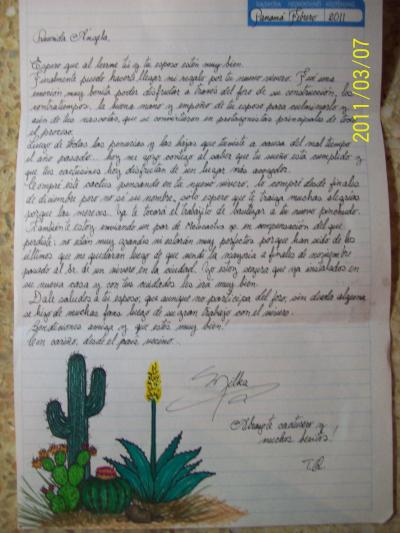 Panamá Febrero 2011
Querida Angela,
Espero que al leerme tú y tu esposo estén muy bien.
Finalmente puedo hacerte llegar mi regalo por tu nuevo vivero. Fue una
emoción muy bonita poder disfrutar a través del foro de su construcción, los
contratiempos, la buena mano y empeño de tu esposo para culminarlo y
aún de tus mascotas, que se convirtieron en protagonistas principales de todo
el proceso.
Luego de todas las penurias y las bajas que tuviste a causa del mal tiempo
el año pasado... hoy me gozo contigo al saber que tu sueño está cumplido y
que tus cactusines hoy disfrutan de un lugar más acogedor.
Compré este cactus pensando en tu nuevo vivero, lo compré desde finales
de diciembre pero no sé su nombre, solo espero que te traiga muchas alegrías
porque las mereces. Ya te tocará el trabajito de bautizar a tu nuevo pinchudo.
También te estoy enviando un par de Melocactus en compensación del que
perdiste; no están muy grandes ni estarán muy perfectos porque han sido de los
últimos que me quedaron luego de que vendí la mayoría a finales de noviembre
pasado al Sr. de un vivero en la ciudad. Yo estoy segura que ya instalados en
su nueva casa y con tus cuidados les irá muy bien.
Dale saludos a tu esposo, que aunque no participa del foro, sin duda alguna
se hizo de muchas fans luego de su gran trabajo con el vivero.
Bendiciones amiga y que estés muy bien!
Con cariño, desde el país vecino...
Milka
Abrazote cactusero y
muchos besitos!
2011/03/07